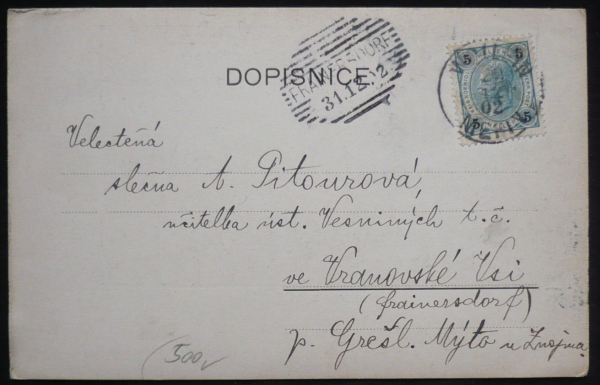 DOPISNICE
FRAINERSDORF
31.12.02
5 5
5
02
Velectěná
slečna A. Pitourová,
učitelka úst. Vesniných t.č.
ve Vranovské Vsi
(frainersdorf)
p. Grešl. Mýto u Znojma
500,